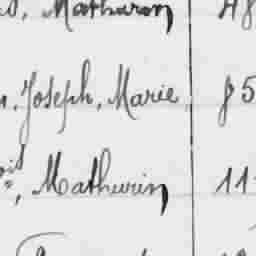 Mathurin 48
Joseph, Marie 85
Mathurin 11